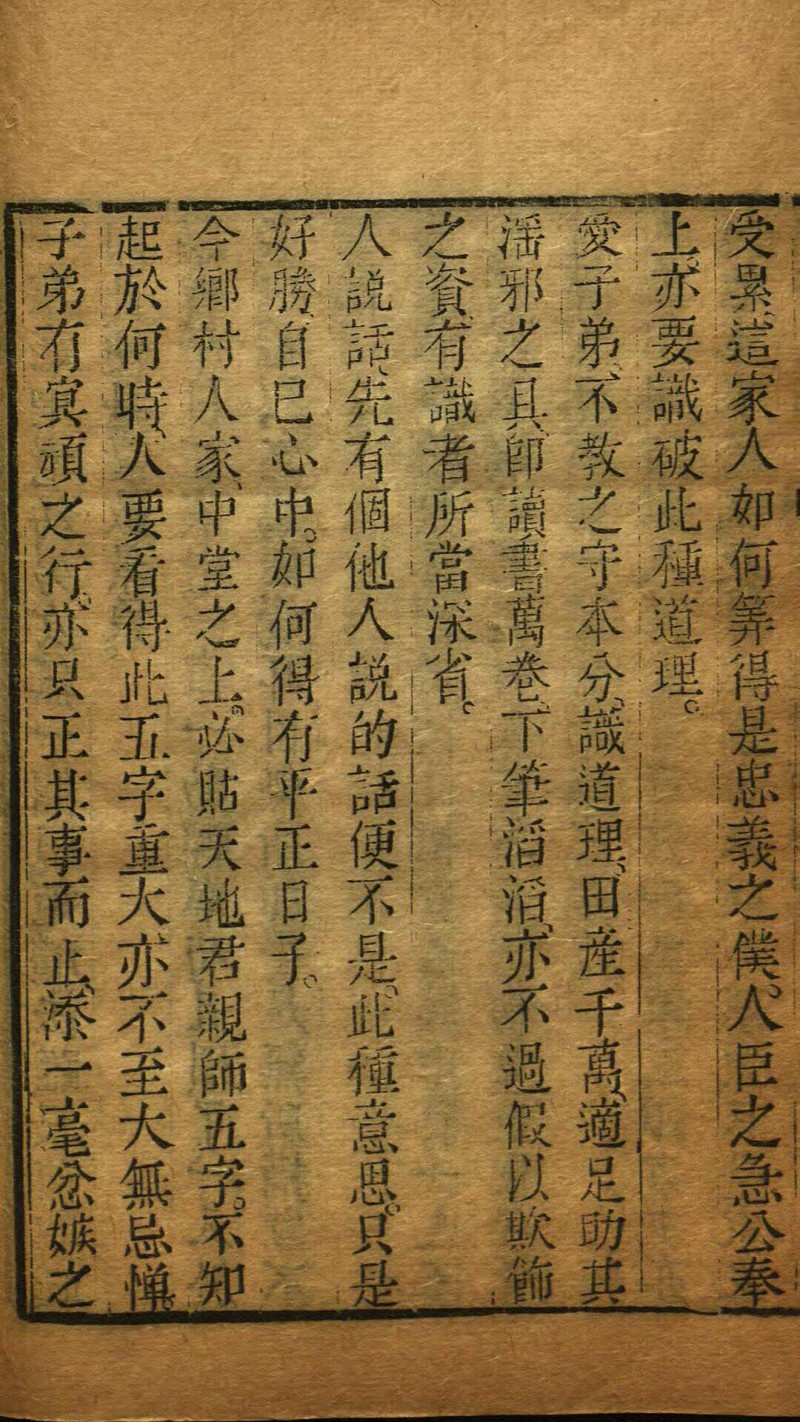 受累、這家人如何筭得是忠義之僕、人臣之急公奉
上、亦要識破此種道理。
愛子弟、不教之守本分、識道理、田産千萬、適足助其
滛邪之具、卽讀書萬卷、下筆滔滔、亦不過假以欺飾
之資、有識者所當深省。
人說話、先有個他人說的話便不是、此種意思、只是
好勝、自已心中。如何得有平正日子。
今鄉村人家、中堂之上。必貼天地君親師五字。不知
起於何時、人要看得此五字重大、亦不至大無忌憚。
子弟有㝠頑之行。亦只正其事而止、添一毫忿嫉之